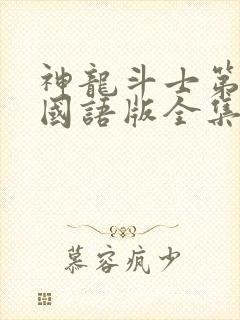 神龍斗士第
國語版全集
慕容疯少